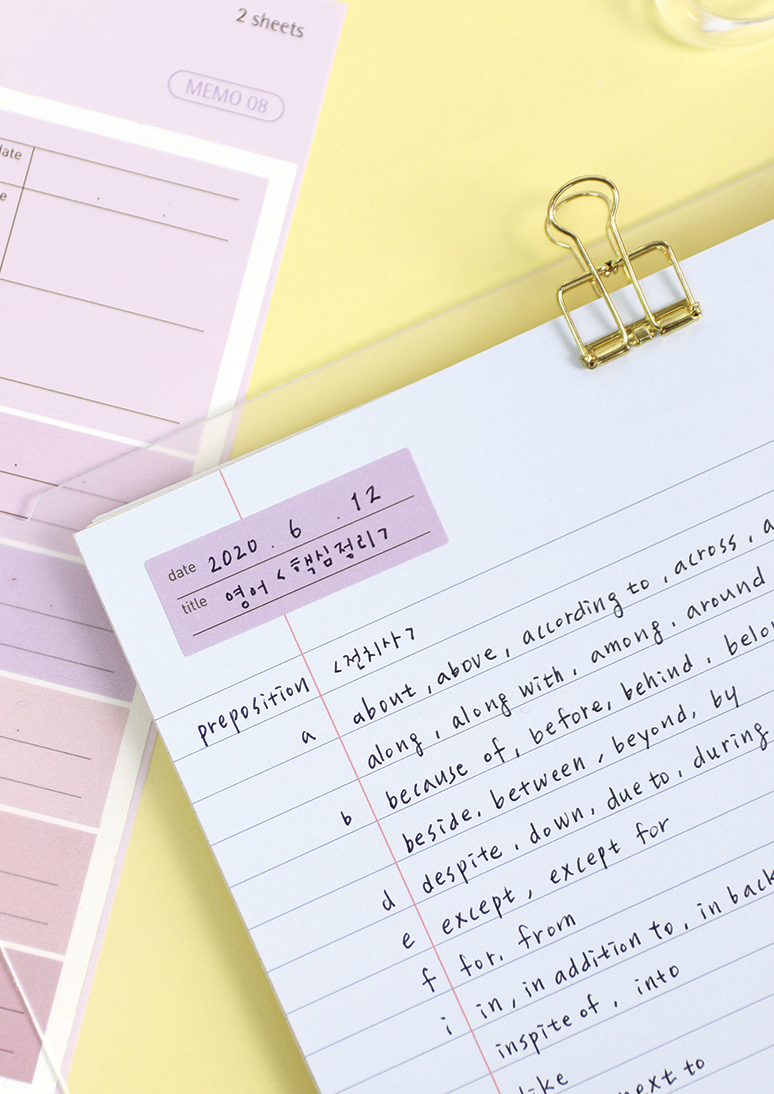 2 sheets
MEMO 08
date
date 2020 . 6 . 12
title 영어 <핵심정리>
preposition <전치사>
a about, above, according to, across,
along, along with, among, around
b because of, before, behind,
beside, between, beyond, by
d despite, down, due to, during
e except, except for
f for, from
i in, in addition to, in back
inspite of, into
like
next to